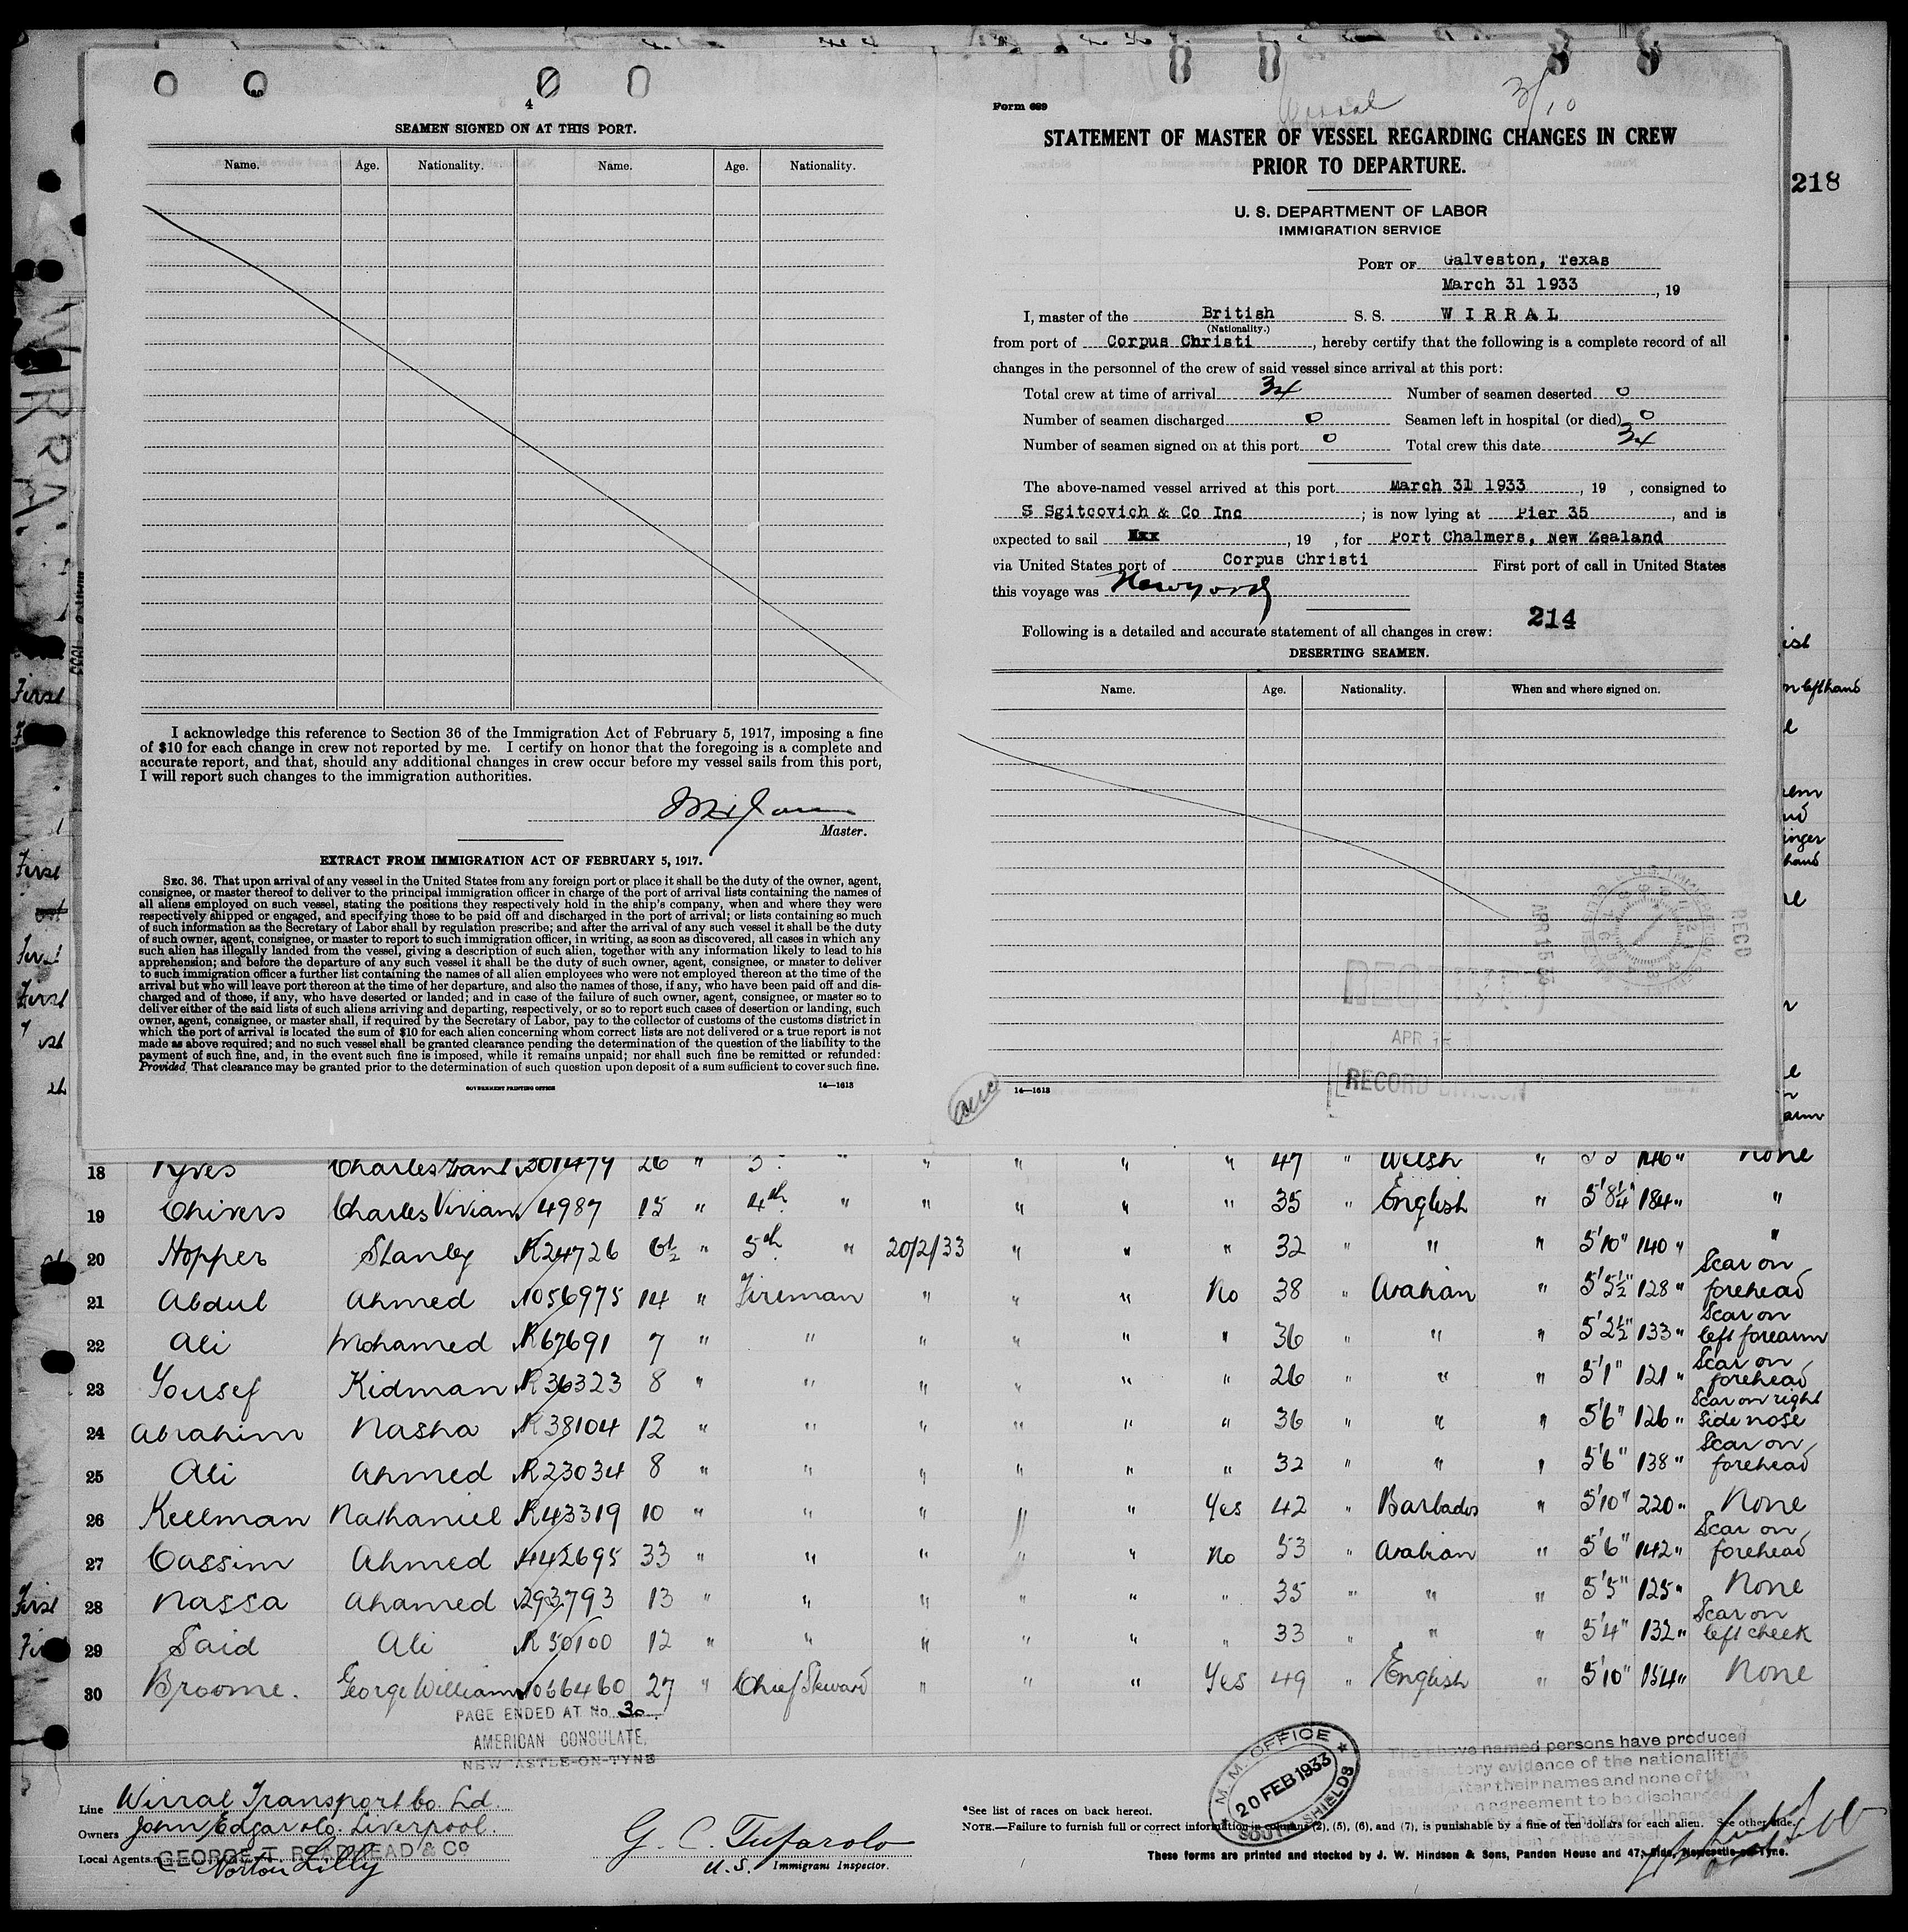 4
SEAMEN SIGNED ON AT THIS PORT.
Name. Age. Nationality. Name. Age. Nationality.
I acknowledge this reference to Section 36 of the Immigration Act of February 5, 1917, imposing a fine
of $10 for each change in crew not reported by me. I certify on honor that the foregoing is a complete and
accurate report, and that, should any additional changes in crew occur before my vessel sails from this port,
I will report such changes to the immigration authorities.
Master.
EXTRACT FROM IMMIGRATION ACT OF FEBRUARY 5, 1917.
SEC. 36. That upon arrival of any vessel in the United States from any foreign port or place it shall be the duty of the owner, agent,
consignee, or master thereof to deliver to the principal immigration officer in charge of the port of arrival lists containing the names of
all aliens employed on such vessel, stating the positions they respectively hold in the ship's company, when and where they were
respectively shipped or engaged, and specifying those to be paid off and discharged in the port of arrival; or lists containing so much
of such information as the Secretary of Labor shall by regulation prescribe; and after the arrival of any such vessel it shall be the duty
of such owner, agent, consignee, or master to report to such immigration officer, in writing, as soon as discovered, all cases in which any
such alien has illegally landed from the vessel, giving a description of such alien, together with any information likely to lead to his
apprehension; and before the departure of any such vessel it shall be the duty of such owner, agent, consignee, or master to deliver
to such immigration officer a further list containing the names of all alien employees who were not employed thereon at the time of the
arrival but who will leave port thereon at the time of her departure, and also the names of those, if any, who have been paid off and dis-
charged and of those, if any, who have deserted or landed; and in case of the failure of such owner, agent, consignee, or master so to
deliver either of the said lists of such aliens arriving and departing, respectively, or so to report such cases of desertion or landing, such
owner, agent, consignee, or master shall, if required by the Secretary of Labor, pay to the collector of customs of the customs district in
which the port of arrival is located the sum of $10 for each alien concerning whom correct lists are not delivered or a true report is not
made as above required; and no such vessel shall be granted clearance pending the determination of the question of the liability to the
payment of such fine, and, in the event such fine is imposed, while it remains unpaid; nor shall such fine be remitted or refunded:
Provided, That clearance may be granted prior to the determination of such question upon deposit of a sum sufficient to cover such fine.
GOVERNMENT PRINTING OFFICE 14—1613
Form 689
Wirral 3/10
STATEMENT OF MASTER OF VESSEL REGARDING CHANGES IN CREW
PRIOR TO DEPARTURE.
U. S. DEPARTMENT OF LABOR
IMMIGRATION SERVICE
218
PORT OF Galveston, Texas
March 31 1933, 19
I, master of the British S. S. WIRRAL
(Nationality.)
from port of Corpus Christi, hereby certify that the following is a complete record of all
changes in the personnel of the crew of said vessel since arrival at this port:
Total crew at time of arrival 34 Number of seamen deserted 0
Number of seamen discharged 0 Seamen left in hospital (or died) 0
Number of seamen signed on at this port 0 Total crew this date 34
The above-named vessel arrived at this port March 31 1933, 19 , consigned to
S Sgitcovich & Co Inc; is now lying at Pier 35, and is
expected to sail xxx, 19 , for Port Chalmers, New Zealand
via United States port of Corpus Christi First port of call in United States
this voyage was Newyork
214
Following is a detailed and accurate statement of all changes in crew:
DESERTING SEAMEN.
Name. Age. Nationality. When and where signed on.
APR 15 33
RECD
RECEIVED
APR 15
RECORD DIVISION
14—1613
18 Charles 301479 26 " 3 " " " " " 47 " Welsh " 146 " None
19 Chivers Charles Vivian 4987 15 " 4th " " " " " 35 " English " 5'8¼" 184 " "
20 Hopper Stanley R24726 6½ " 5th " 20/2/33 " " " 32 " " " 5'10" 140 " "
21 Abdul Ahmed 1056975 14 " Fireman " " " No 38 " Arabian " 5'5½" 128 " Scar on forehead
22 Ali Mohamed R67691 7 " " " " " " 36 " " " 5'2½" 133 " Scar on left forearm
23 Yousef Kidman R36323 8 " " " " " " 26 " " " 5'1" 121 " Scar on forehead
24 Abrahim Nasha R38104 12 " " " " " " 36 " " " 5'6" 126 " Scar on right side nose
25 Ali Ahmed R23034 8 " " " " " " 32 " " " 5'6" 138 " Scar on forehead
26 Kellman Nathaniel R43319 10 " " " " " Yes 42 " Barbados " 5'10" 220 " None
27 Cassim Ahmed 442695 33 " " " " " No 53 " Arabian " 5'6" 142 " Scar on forehead
First 28 Nassa Ahamed 293793 13 " " " " " " 35 " " " 5'5" 125 " None
29 Said Ali R50100 12 " " " " " " 33 " " " 5'4" 132 " Scar on left cheek
30 Broome. George William 1066460 27 " Chief Steward " " " Yes 49 " English " 5'10" 154 " None
PAGE ENDED AT No. 30
AMERICAN CONSULATE,
NEWCASTLE-ON-TYNE
M. M. OFFICE
20 FEB 1933
SOUTH SHIELDS
The above named persons have produced
satisfactory evidence of the nationalities
stated after their names and none of them
is under an agreement to be discharged
Line Wirral Transport Co. Ld.
Owners John Edgar & Co. Liverpool.
Local Agents GEORGE T. READHEAD & Co
Norton Lilly
G. C. Tufarolo
U.S. Immigrant Inspector.
*See list of races on back hereof.
NOTE.—Failure to furnish full or correct information in columns (2), (5), (6), and (7), is punishable by a fine of ten dollars for each alien. See other side.
These forms are printed and stocked by J. W. Hindson & Sons, Pandon House and 47, Side, Newcastle-on-Tyne.